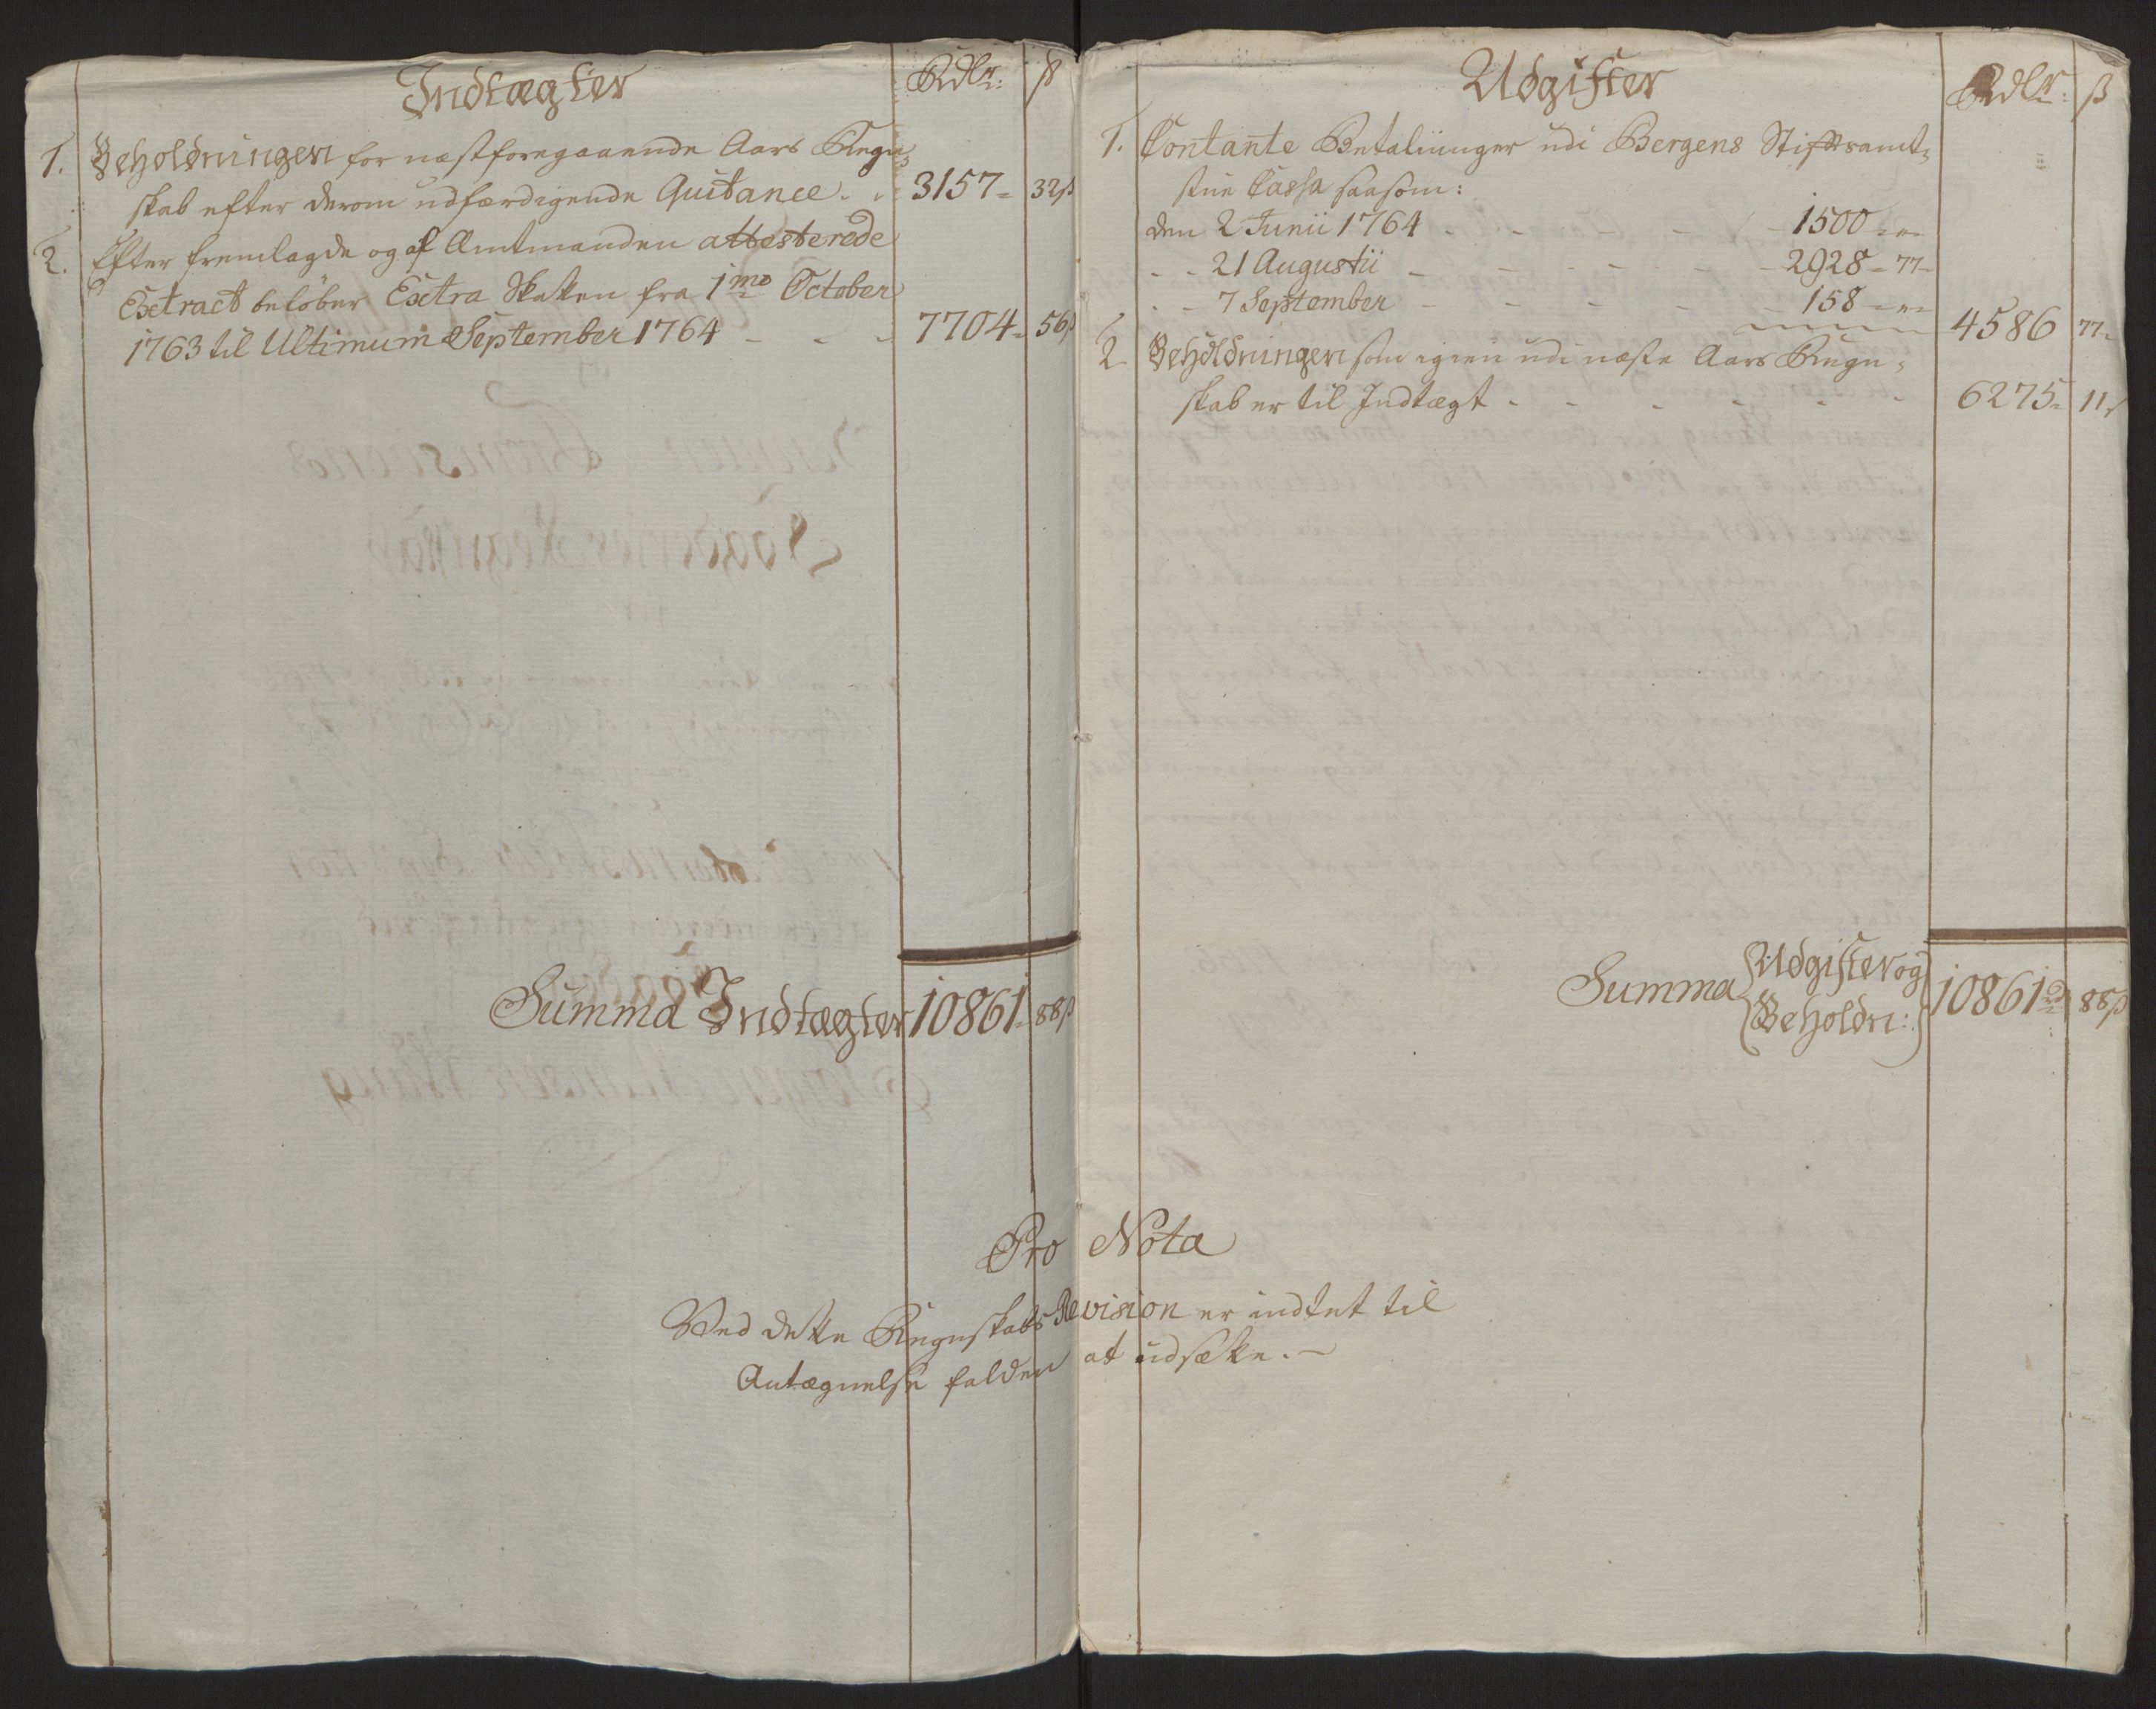 Indtægter Rdlr: ß
1. Beholdningen for næstforegaaende Aars Regn-
skab efter derom udfærdigende Quitance. . 3157 - 32ß
2. Efter fremlagde og af Amtmanden attesterede
Extract beløber Extra Skatten fra 1mo October
1763 til Ultimum September 1764 - - - 7704 - 56ß
Summa Indtægter 10861 - 88ß
Udgifter Rdlr: ß
1. Contante Betalinger udi Bergens Stiftsamt-
stue Cassa saasom:
den 2 Junii 1764 - - - - 1500 - "-
- - 21 Augustii - - - - - 2928 - 77 -
- - 7 September - - - - - 158 - "-
4586 77 -
2 Beholdningen som igien udi næste Aars Regn-
skab er til Indtægt - - - - - - 6275 - 11ß
Summa {Udgifter og Beholdn:} 10861 rd 88ß
Pro Nota
Ved dette Regnskabs Revision er indtet til
Antægnelse falden at udsætte. -